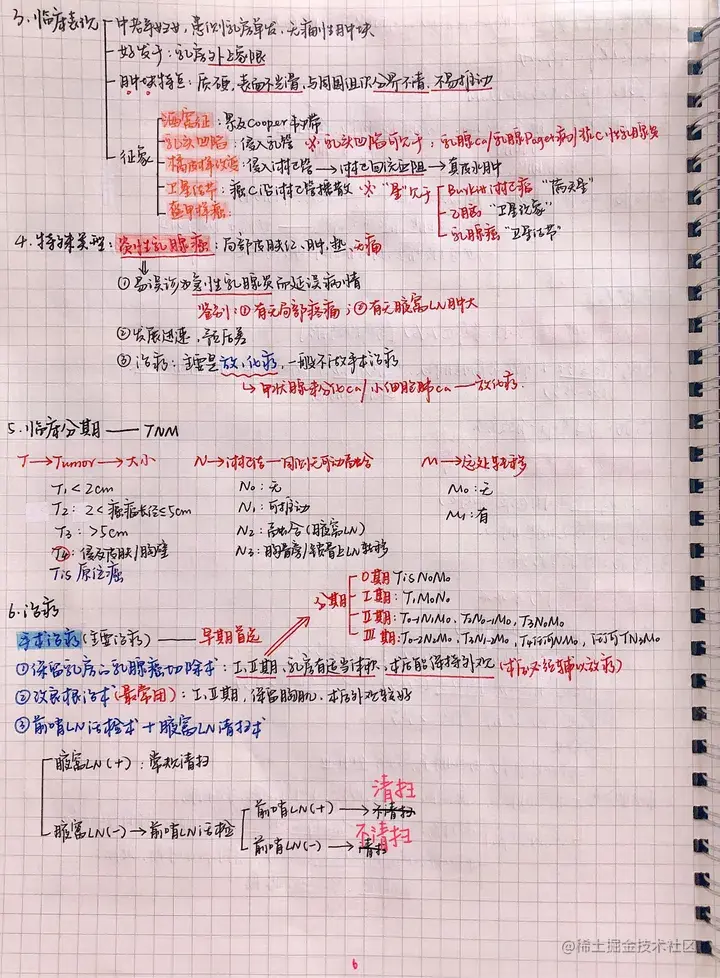 3. 临床表现 中老年妇女,患侧乳房单发、无痛性肿块
好发于:乳房外上象限
肿块特点:质硬,表面不光滑,与周围组织分界不清,不易推动
征象
酒窝征:累及Cooper韧带
乳头凹陷:侵入乳管 ※乳头凹陷可见于:乳腺Ca/乳腺Paget病/浆C性乳腺炎
橘皮样改变:侵入淋巴管→淋巴回流受阻→真皮水肿
卫星结节:癌C沿淋巴管播散 ※"星"见于 Burkitt淋巴瘤 "满天星"
乙脑 "卫星现象"
乳腺癌 "卫星结节"
铠甲样癌:
4. 特殊类型:炎性乳腺癌:局部皮肤红、肿、热、无痛
①易误诊为急性乳腺炎而延误病情
鉴别:①有无局部疼痛;②有无腋窝LN肿大
②发展迅速,预后差
③治疗:主要是放、化疗,一般不做手术治疗
↳甲状腺未分化ca/小细胞肺ca——放化疗.
5. 临床分期——TNM
T→Tumor→大小 N→淋巴结—同侧,可动,融合 M→远处转移
T₁<2cm N₀:无 M₀:无
T₂: 2<癌瘤长径≤5cm N₁:可推动 M₁:有
T₃:>5cm N₂:融合(腋窝LN)
T4:侵及皮肤/胸壁 N3:胸骨旁/锁骨上LN转移
Tis原位癌
分期 0期 TisN₀M₀
Ⅰ期:T₁M₀N₀
Ⅱ期:T₀₋₁N₁M₀, T₂N₀₋₁M₀, T₃N₀M₀
Ⅲ期:T₀₋₂N₂M₀, T₃N₁₋₂M₀, T₄任何NM₀, 任何TN₃M₀
6. 治疗
手术治疗(主要治疗)——早期首选
①保留乳房的乳腺癌切除术:Ⅰ、Ⅱ期,乳房有适当体积,术后能保持外观(术后必须辅以放疗)
②改良根治术(最常用):Ⅰ、Ⅱ期,保留胸肌,术后外观较好
③前哨LN活检术+腋窝LN清扫术
腋窝LN(+):常规清扫
清扫
腋窝LN(-)→前哨LN活检 前哨LN(+)→不清扫
不清扫
前哨LN(-)→清扫
6
@稀土掘金技术社区